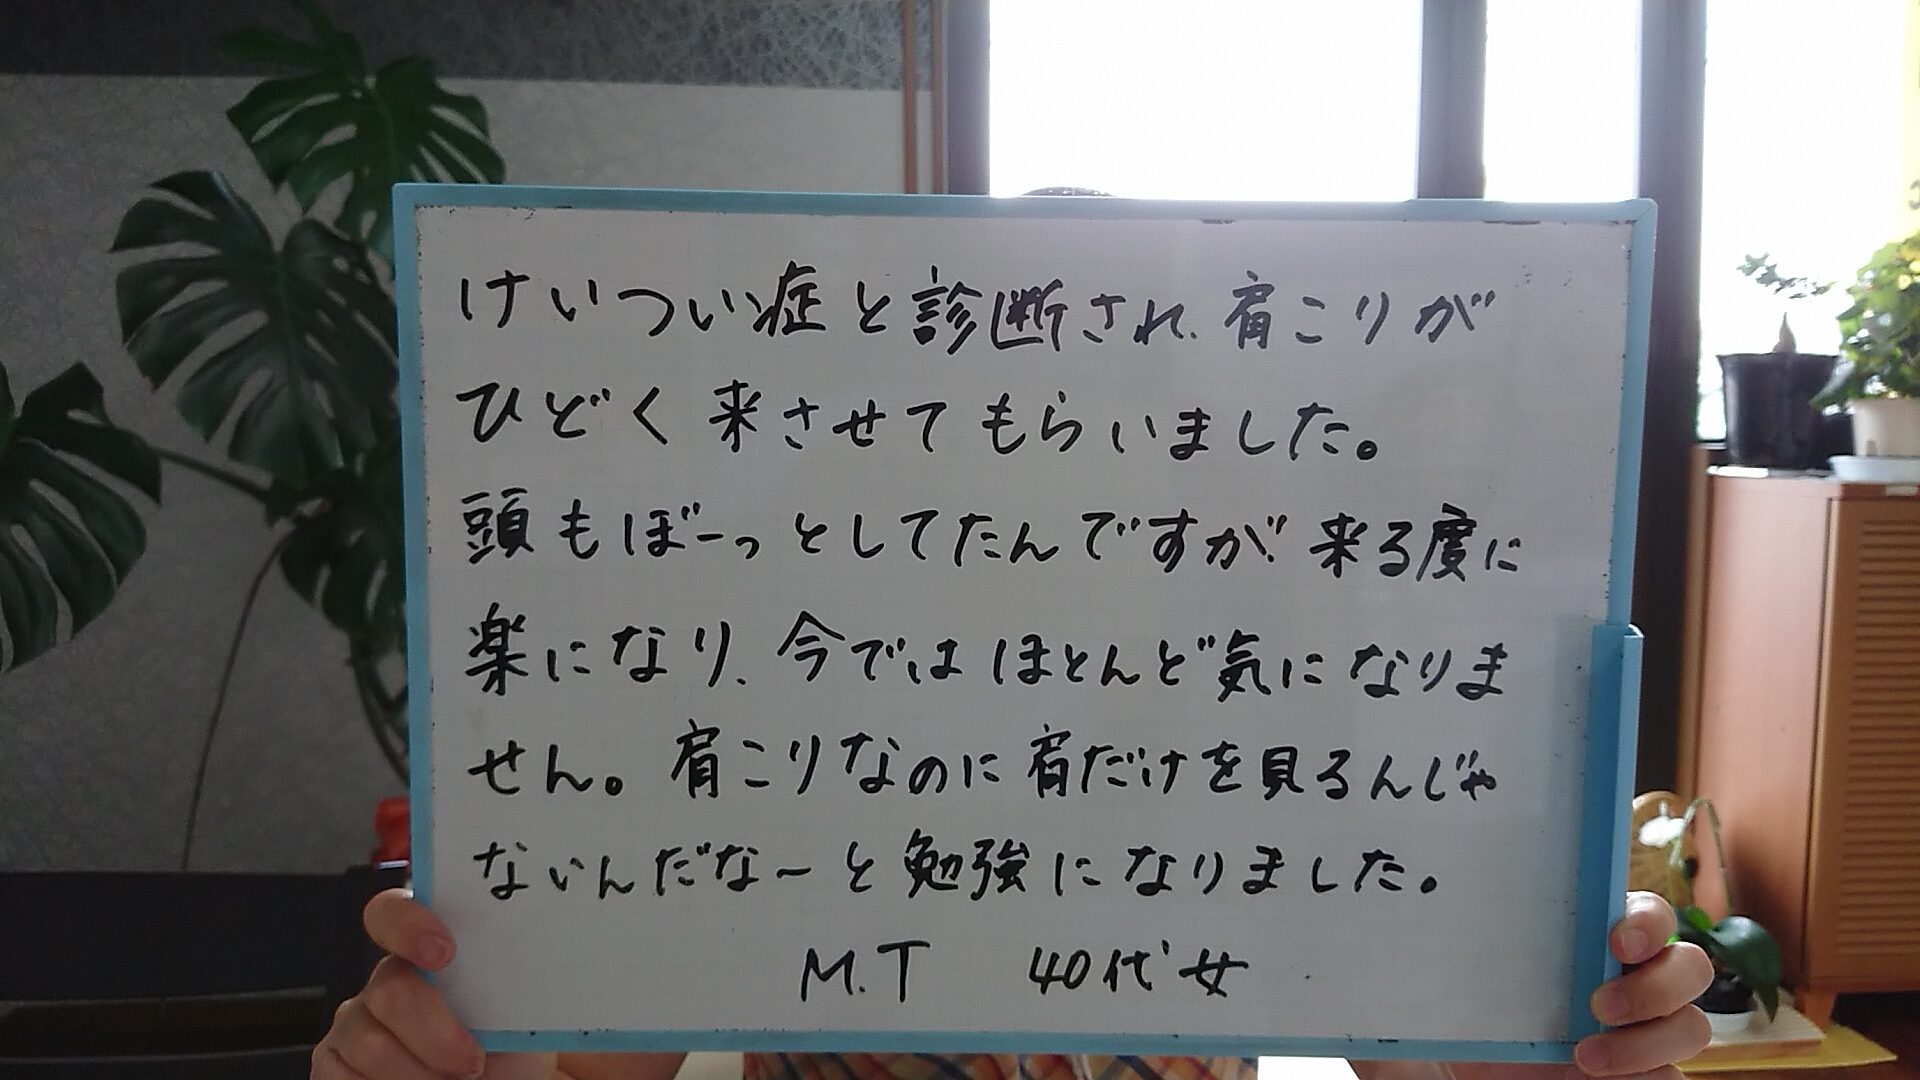 けいつい症と診断され、肩こりが
ひどく来させてもらいました。
頭もぼーっとしてたんですが、来る度に
楽になり、今ではほとんど気になりま
せん。肩こりなのに肩だけを見るんじゃ
ないんだな～と勉強になりました。
M.T 40代 女